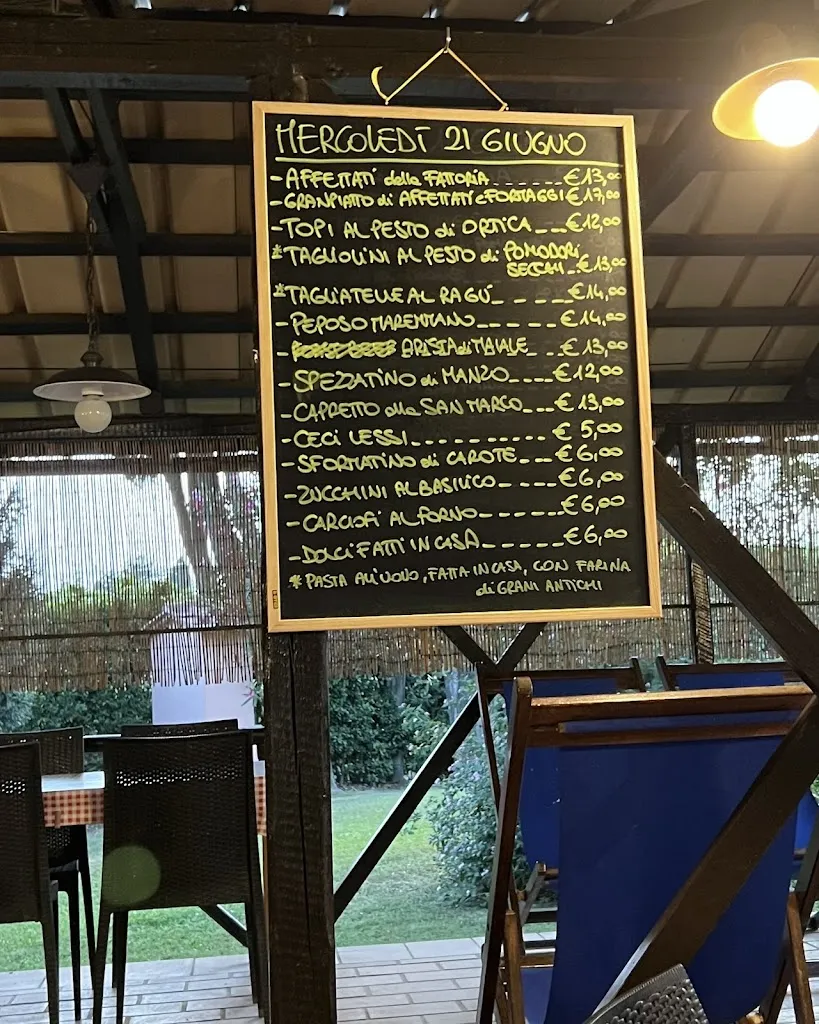 MERCOLEDÌ 21 GIUGNO
- AFFETTATI della FATTORIA ------ €13,00
- GRANPIATTO di AFFETTATI e FORTAGGI €17,00
- TOPI AL PESTO di ORTICA ---- €12,00
* TAGLIOLINI AL PESTO di POMODORI
SECCHI -- €13,00
* TAGLIATELLE AL RAGÙ _ _ _ _ _ €14,00
- PEPOSO MAREMMANO ------ €14,00
- ARISTA di MAIALE --- €13,00
- SPEZZATINO di MANZO ---- €12,00
- CAPRETTO alla SAN MARCO --- €13,00
- CECI LESSI ----------- € 5,00
- SFORMATINO di CAROTE --- €6,00
- ZUCCHINI AL BASILICO ----- €6,00
- CARCIOFI AL FORNO ------ €6,00
- DOLCI FATTI IN CASA ------ €6,00
* PASTA All'UOVO, FATTA IN CASA, CON FARINA
di GRANI ANTICHI